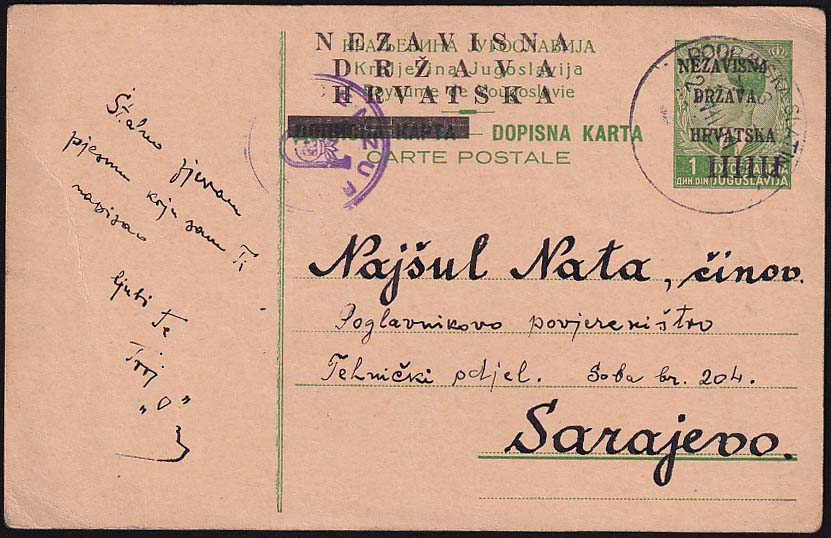 NEZAVISNA
DRŽAVA
HRVATSKA
КРАЉЕВИНА ЈУГОСЛАВИЈА
Kraljevina Jugoslavija
Royaume de Yougoslavie
ДОПИСНА КАРТА DOPISNA KARTA
CARTE POSTALE
NEZAVISNA
DRŽAVA
HRVATSKA
1
ДИН. DIN
JUGOSLAVIJA
PODRAVSKA SLATINA
Stalno pjevam
pjesmu koju sam Ti
napisao
ljubi Te
Tvoj
"O"
Najšul Nata, činov.
Poglavnikovo povjereništvo
Tehnički odjel. Soba br. 204.
Sarajevo.